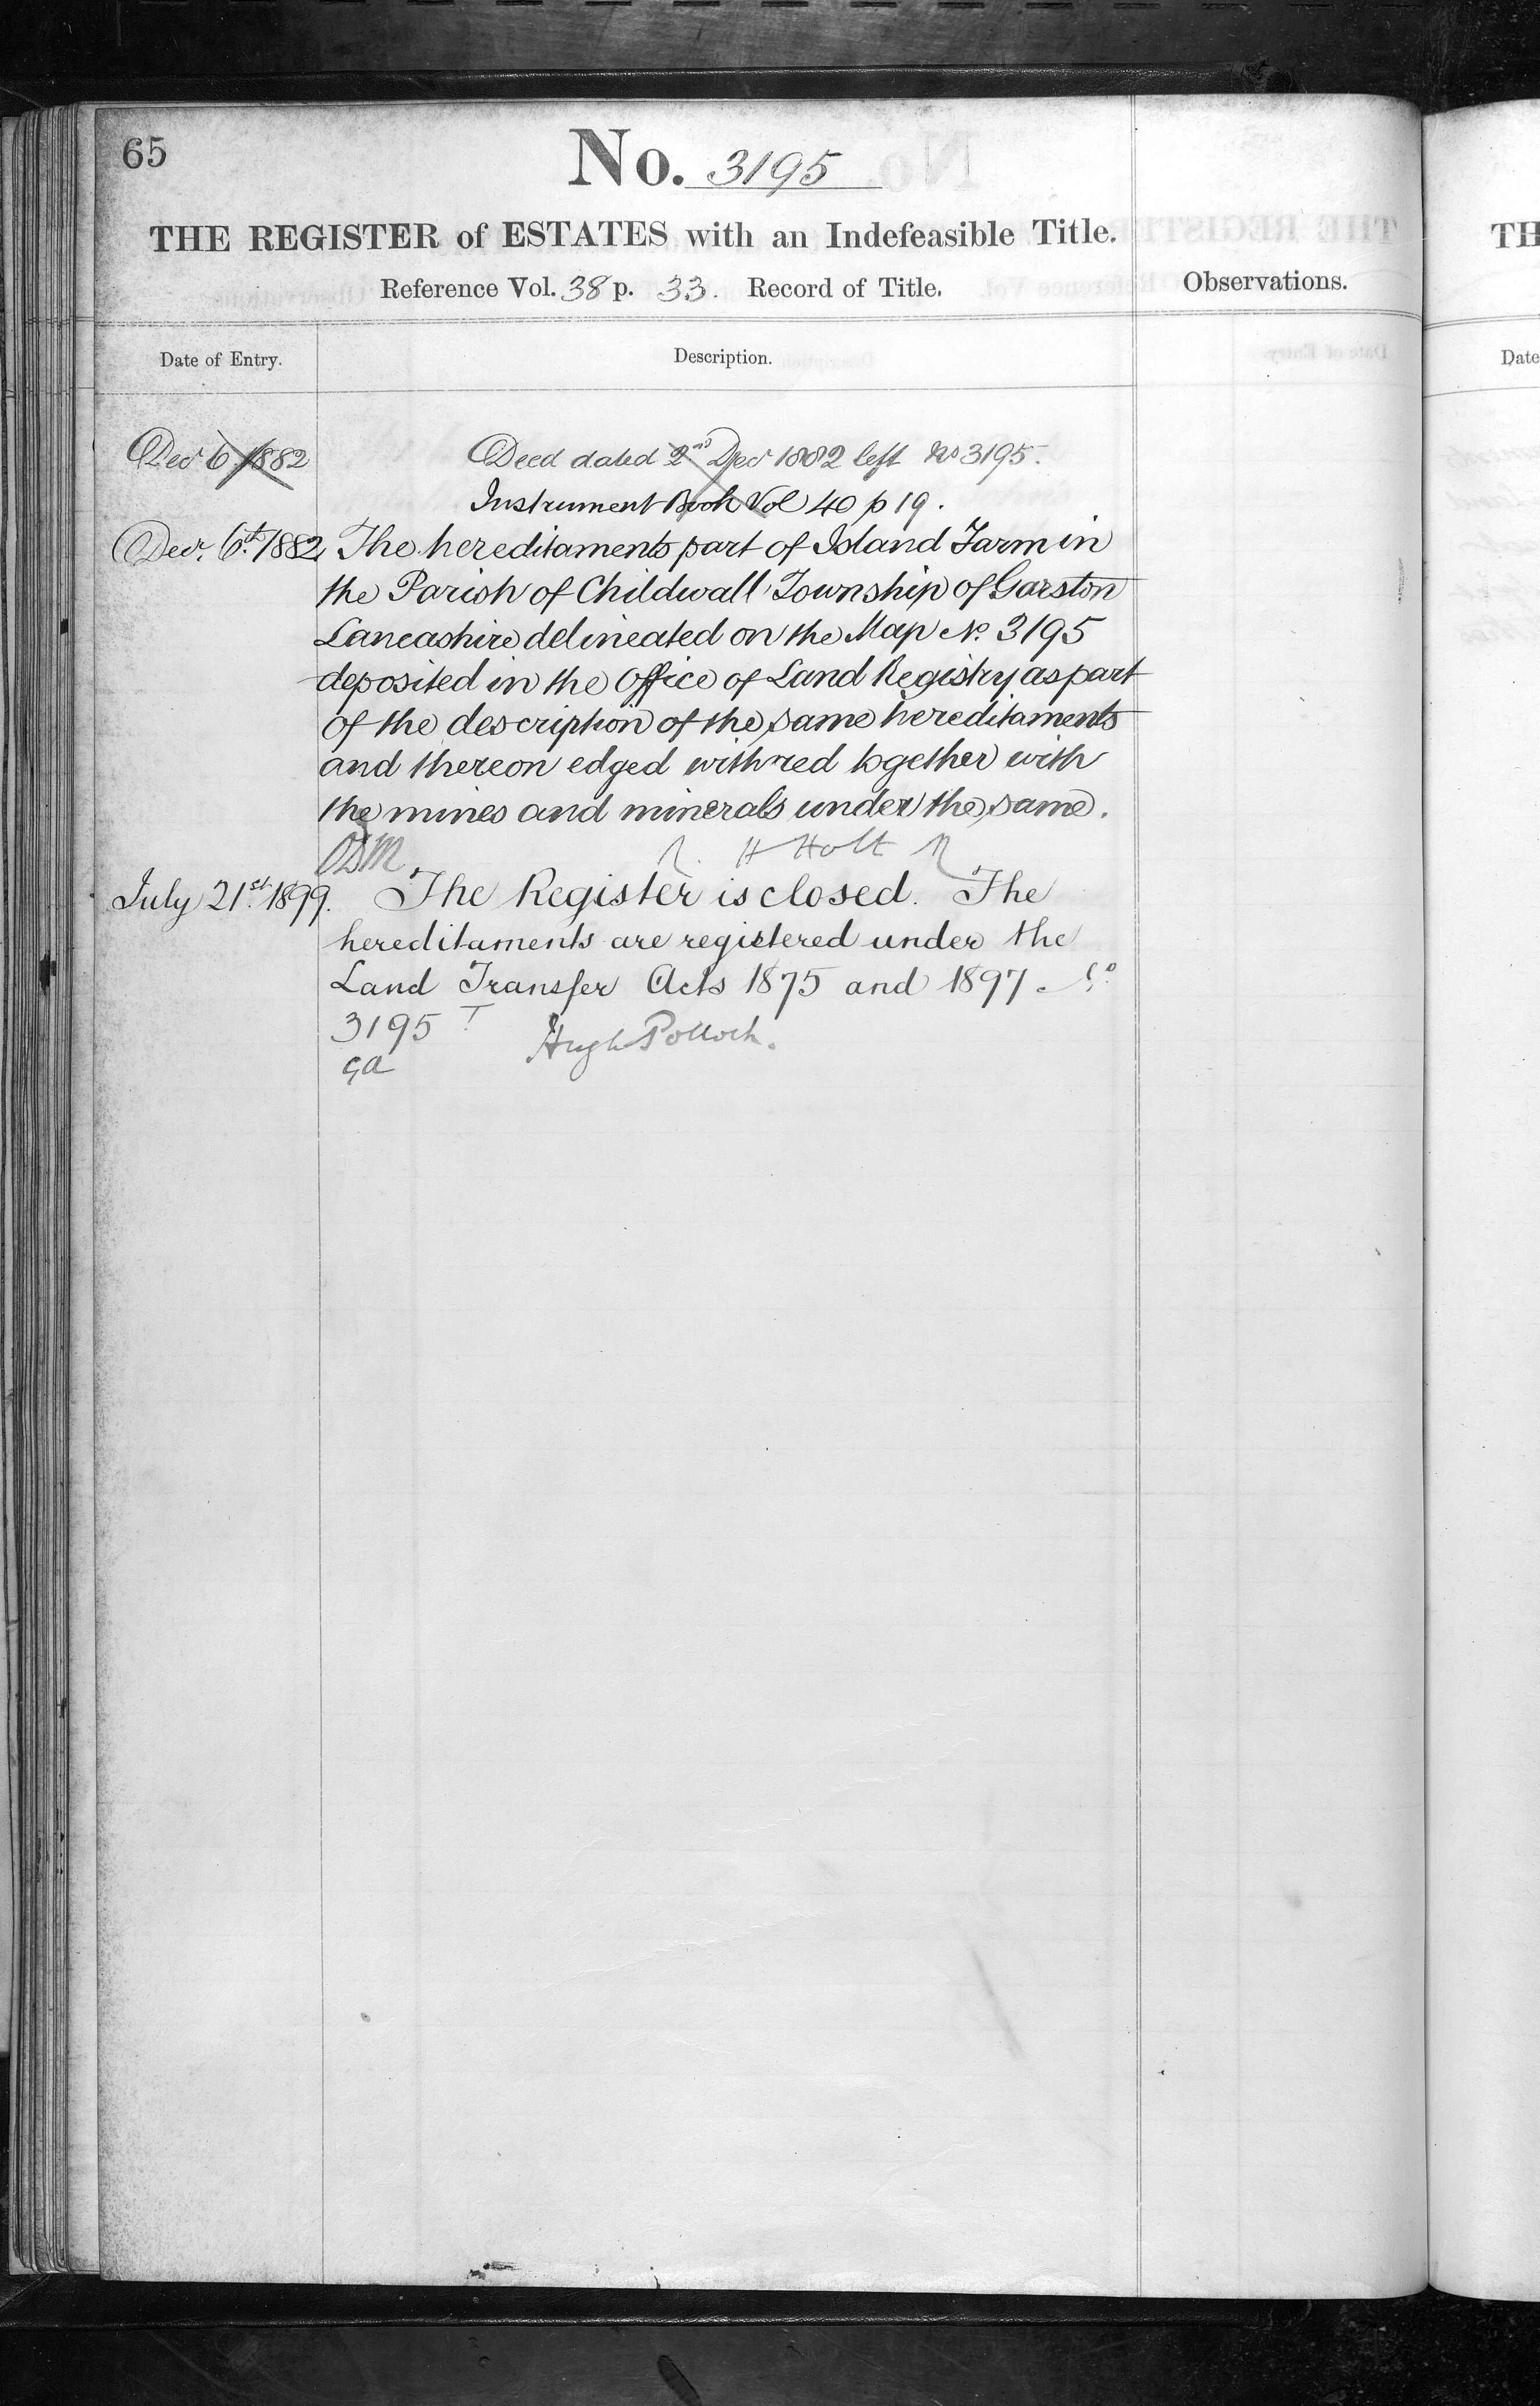 65
No. 3195
THE REGISTER of ESTATES with an Indefeasible Title.
Reference Vol. 38 p. 33. Record of Title.
Observations.
Date of Entry.
Description.
Dec 6 1882
Deed dated 2nd Decr 1882 left No 3195.
Instrument Book Vol 40 p 19.
Decr. 6th 1882 The hereditaments part of Island Farm in
the Parish of Childwall Township of Garston
Lancashire delineated on the Map No. 3195
deposited in the Office of Land Registry as part
of the description of the same hereditaments
and thereon edged with red together with
the mines and minerals under the same.
H Holt
July 21st. 1899. The Register is closed. The
hereditaments are registered under the
Land Transfer Acts 1875 and 1897.
3195
Hugh Pollock.
GA
TH
Date